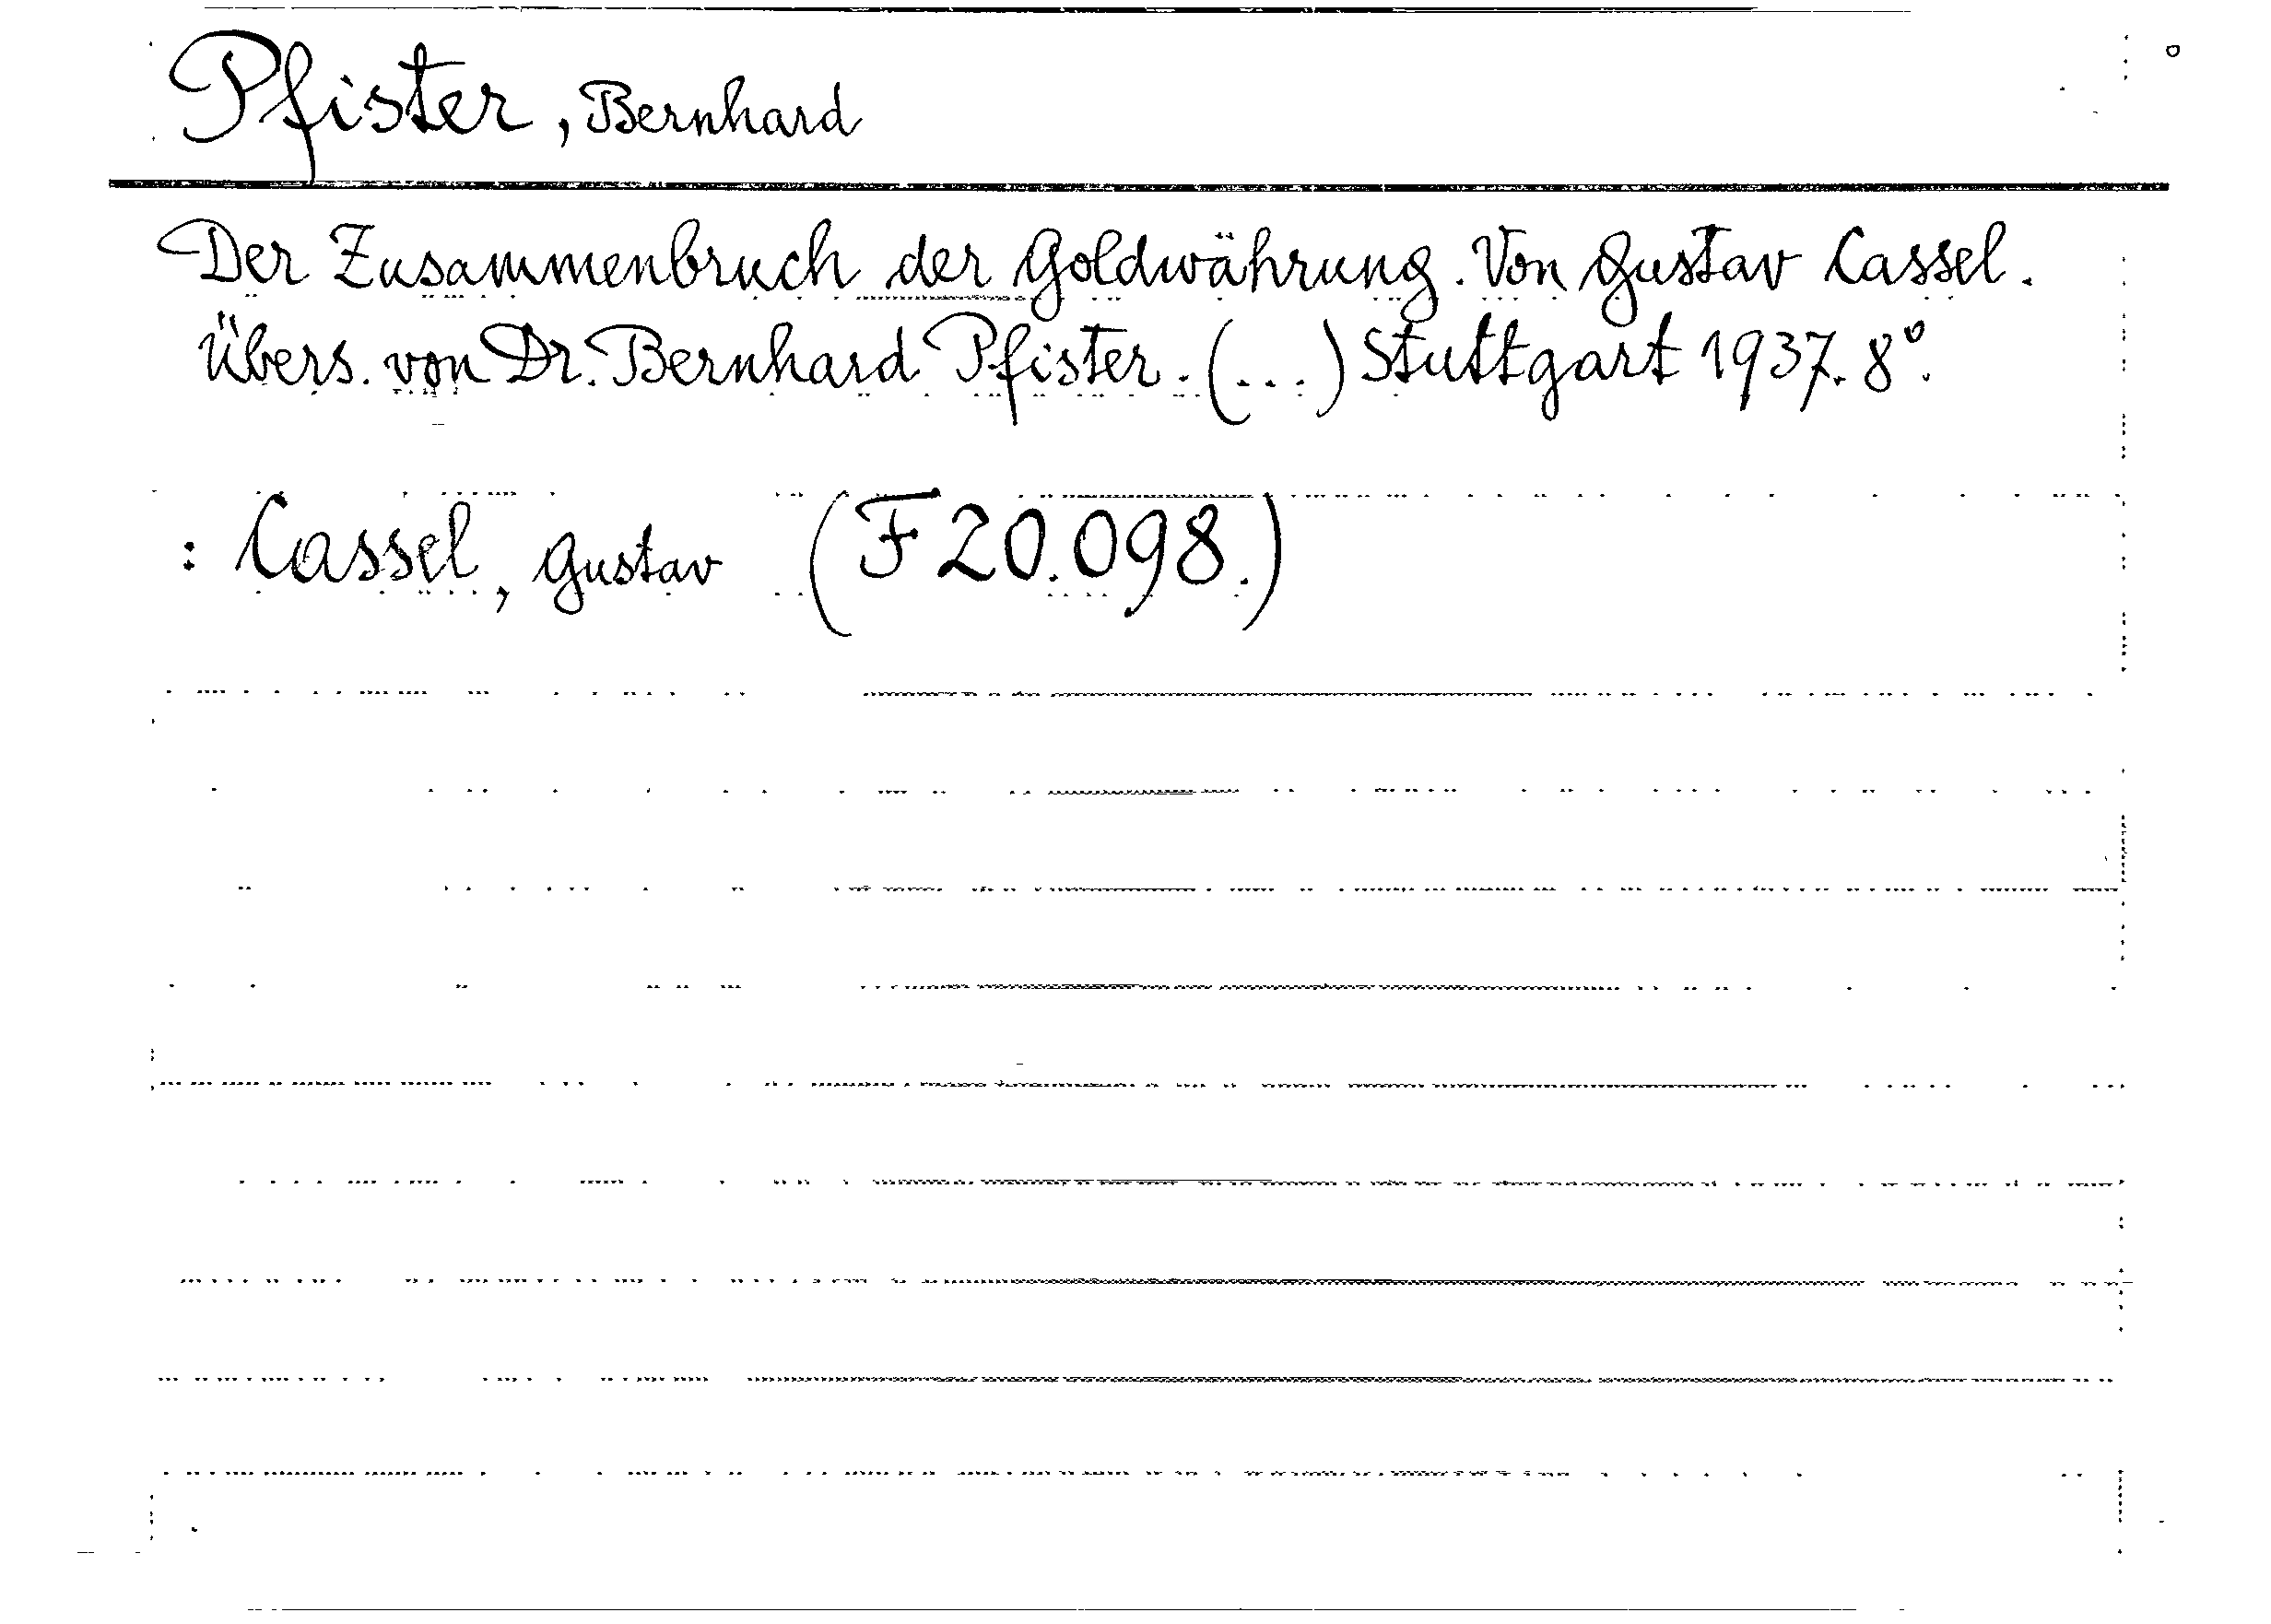 Pfister, Bernhard
Der Zusammenbruch der Goldwährung. Von Gustav Cassel.
Übers. von Dr. Bernhard Pfister. (...) Stuttgart 1937. 8°.
: Cassel, Gustav (F 20.098.)